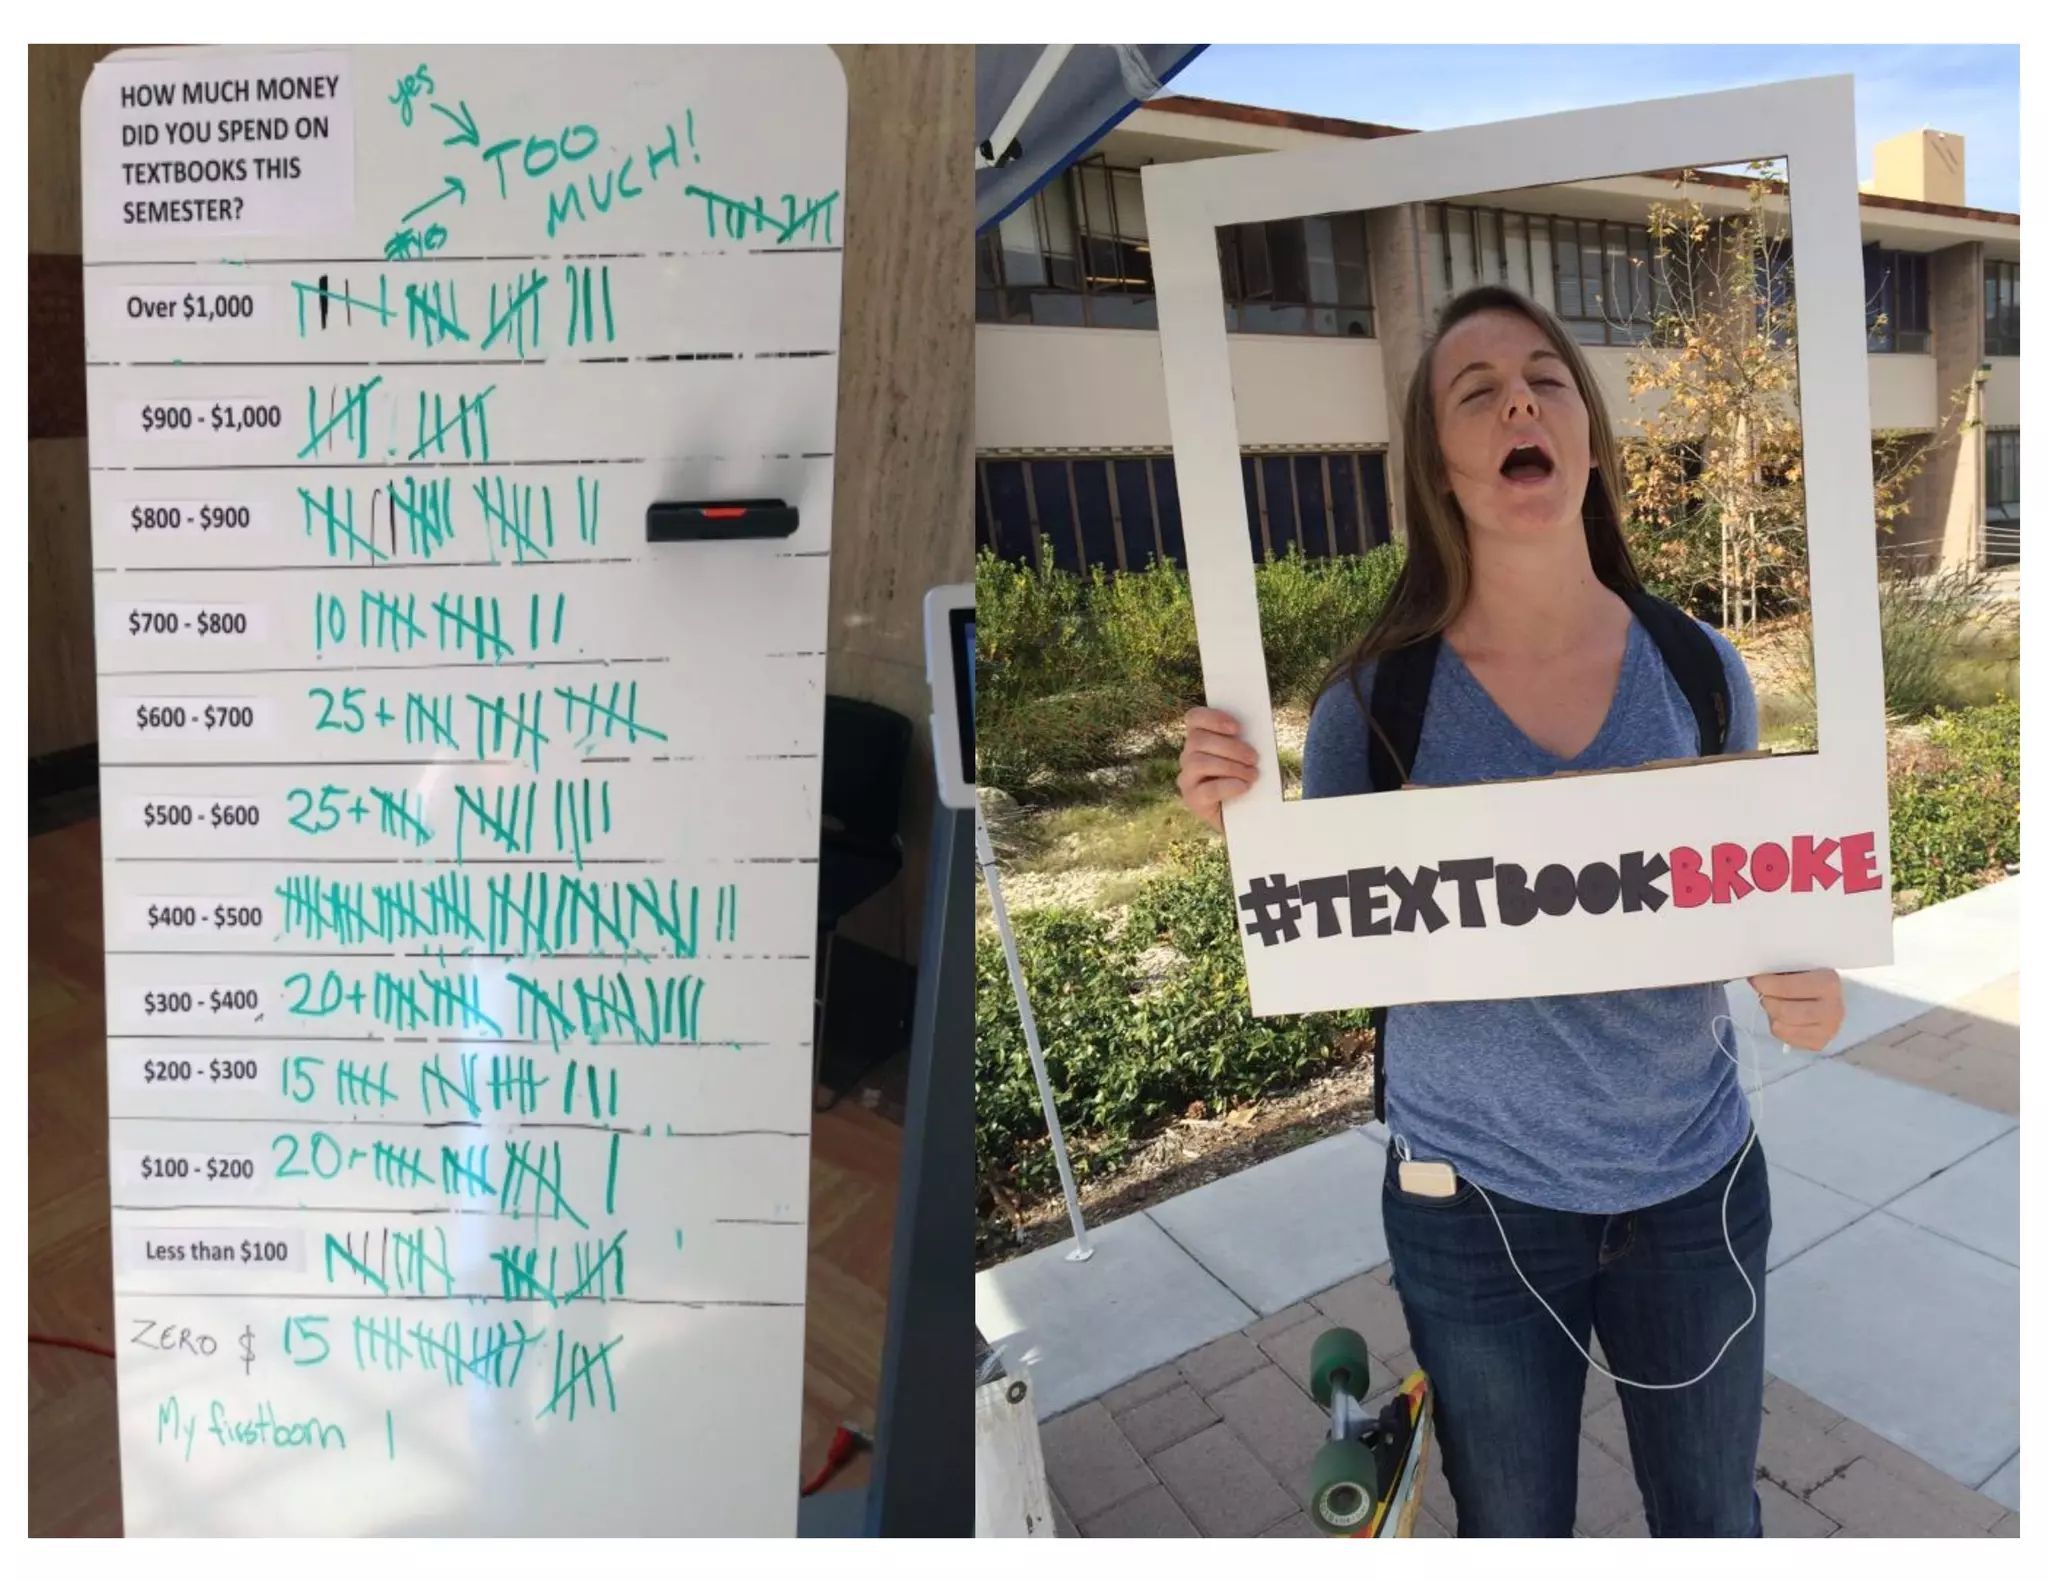 HOW MUCH MONEY
DID YOU SPEND ON
TEXTBOOKS THIS
SEMESTER?
yes
TOO
MUCH!
Over $1,000
$900 - $1,000
$800 - $900
$700 - $800 10
$600 - $700 25+
$500 - $600 25+
$400 - $500
$300 - $400 20+
$200 - $300 15
$100 - $200 20
Less than $100
ZERO $ 15
My firstborn |
#TEXTBOOKBROKE